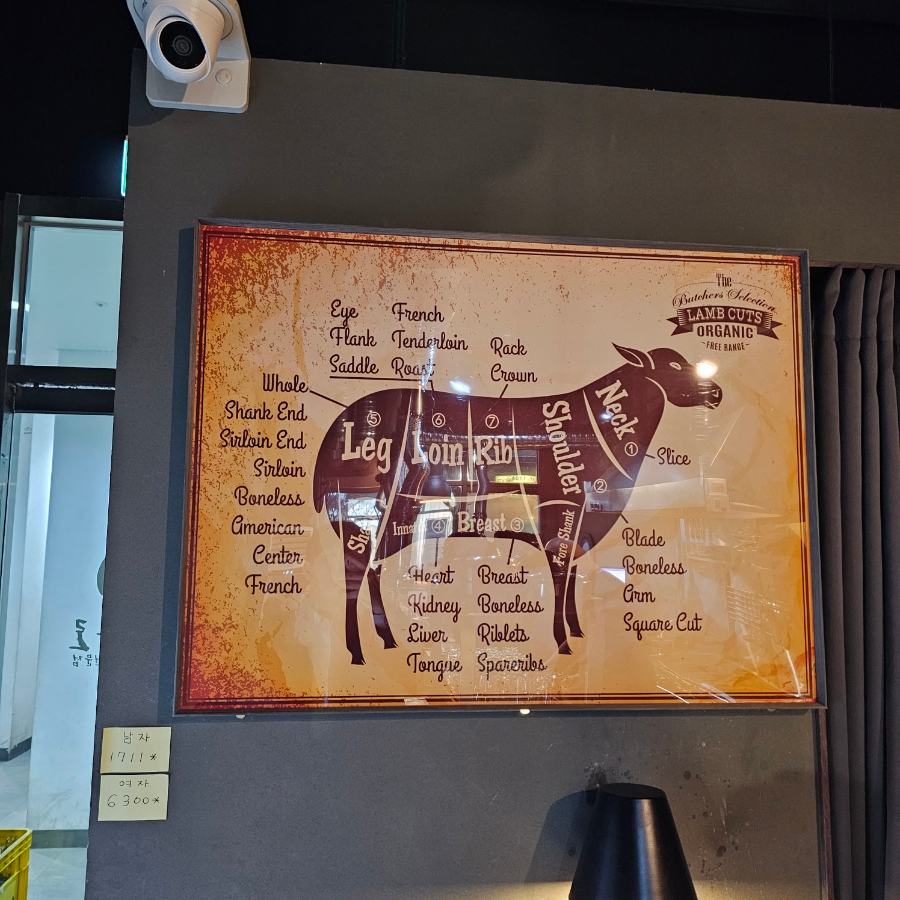 The
Butchers Selection
LAMB CUTS
ORGANIC
~FREE RANGE~
Eye French
Flank Tenderloin
Saddle Roast
Rack
Crown
Whole
Shank End
Sirloin End
Sirloin
Boneless
American
Center
French
⑤
Leg
⑥
Loin
⑦
Rib
Shoulder
②
Neck
①
Slice
④
Breast ③
Fore Shank
Blade
Boneless
Arm
Square Cut
Heart
Kidney
Liver
Tongue
Breast
Boneless
Riblets
Spareribs
남자
1711*
여자
6300*